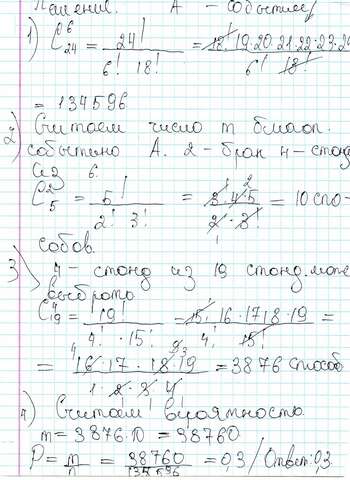 Решение. А – событие
1) C⁶₂₄ = 24! / 6! 18! = 18! 19·20·21·22·23·24 / 6! 18!
= 134596
2) Считаем число m благоп.
событию А. 2 – брак 4 – станд
из 6.
C²₅ = 5! / 2! 3! = 3! 4·5 / 2·3! = 10 спо-
собов.
3) 4 – станд из 19 станд. можн
выбрать
C⁴₁₉ = 19! / 4! 15! = 15! 16·17 18·19 / 4! 15! =
= 16·17·18·19 / 1·2·3·4 = 3876 способ
4) Считаем вероятность.
m = 3876·10 = 38760
P = m / n = 38760 / 134596 = 0,3 / Ответ: 0,3.